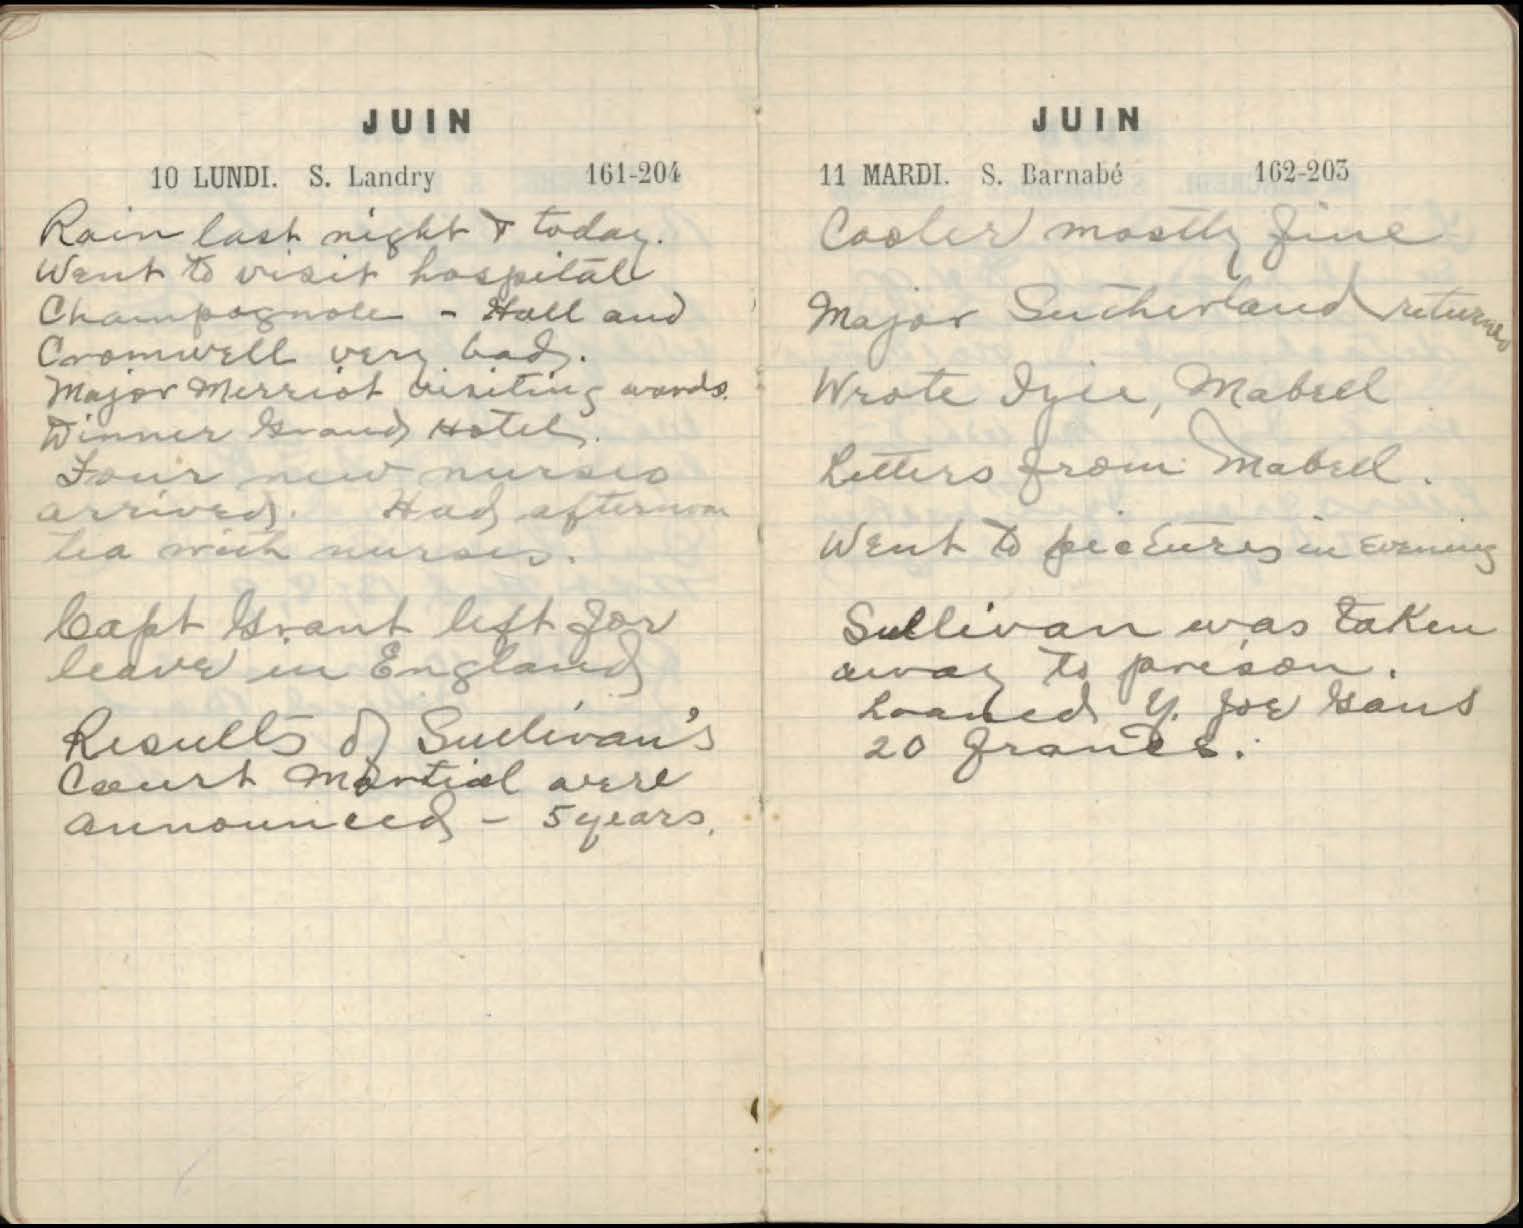 JUIN
10 LUNDI. S. Landry 161-204
Rain last night & today.
Went to visit hospital
Champagnole - Hall and
Cromwell very bad.
Major Merriot visiting wards.
Dinner Grand Hotel.
Four new nurses
arrived. Had afternoon
tea with nurses.
Capt Grant left for
leave in England
Results of Sullivan's
Court Martial were
announced - 5 years.
JUIN
11 MARDI. S. Barnabé 162-203
Cooler mostly fine
Major Sutherland returned
Wrote Mabell
Letters from Mabell.
Went to pictures in evening
Sullivan was taken
away to prison.
Loaned Y. Joe Gans
20 francs.